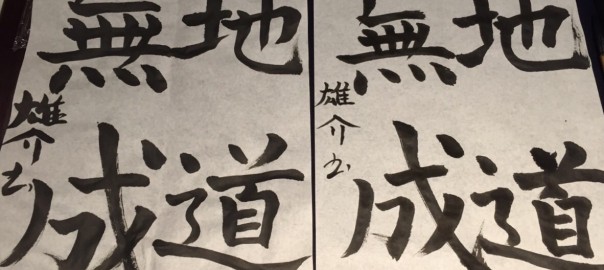 地道
無成
雄介書
地道
無成
雄介書